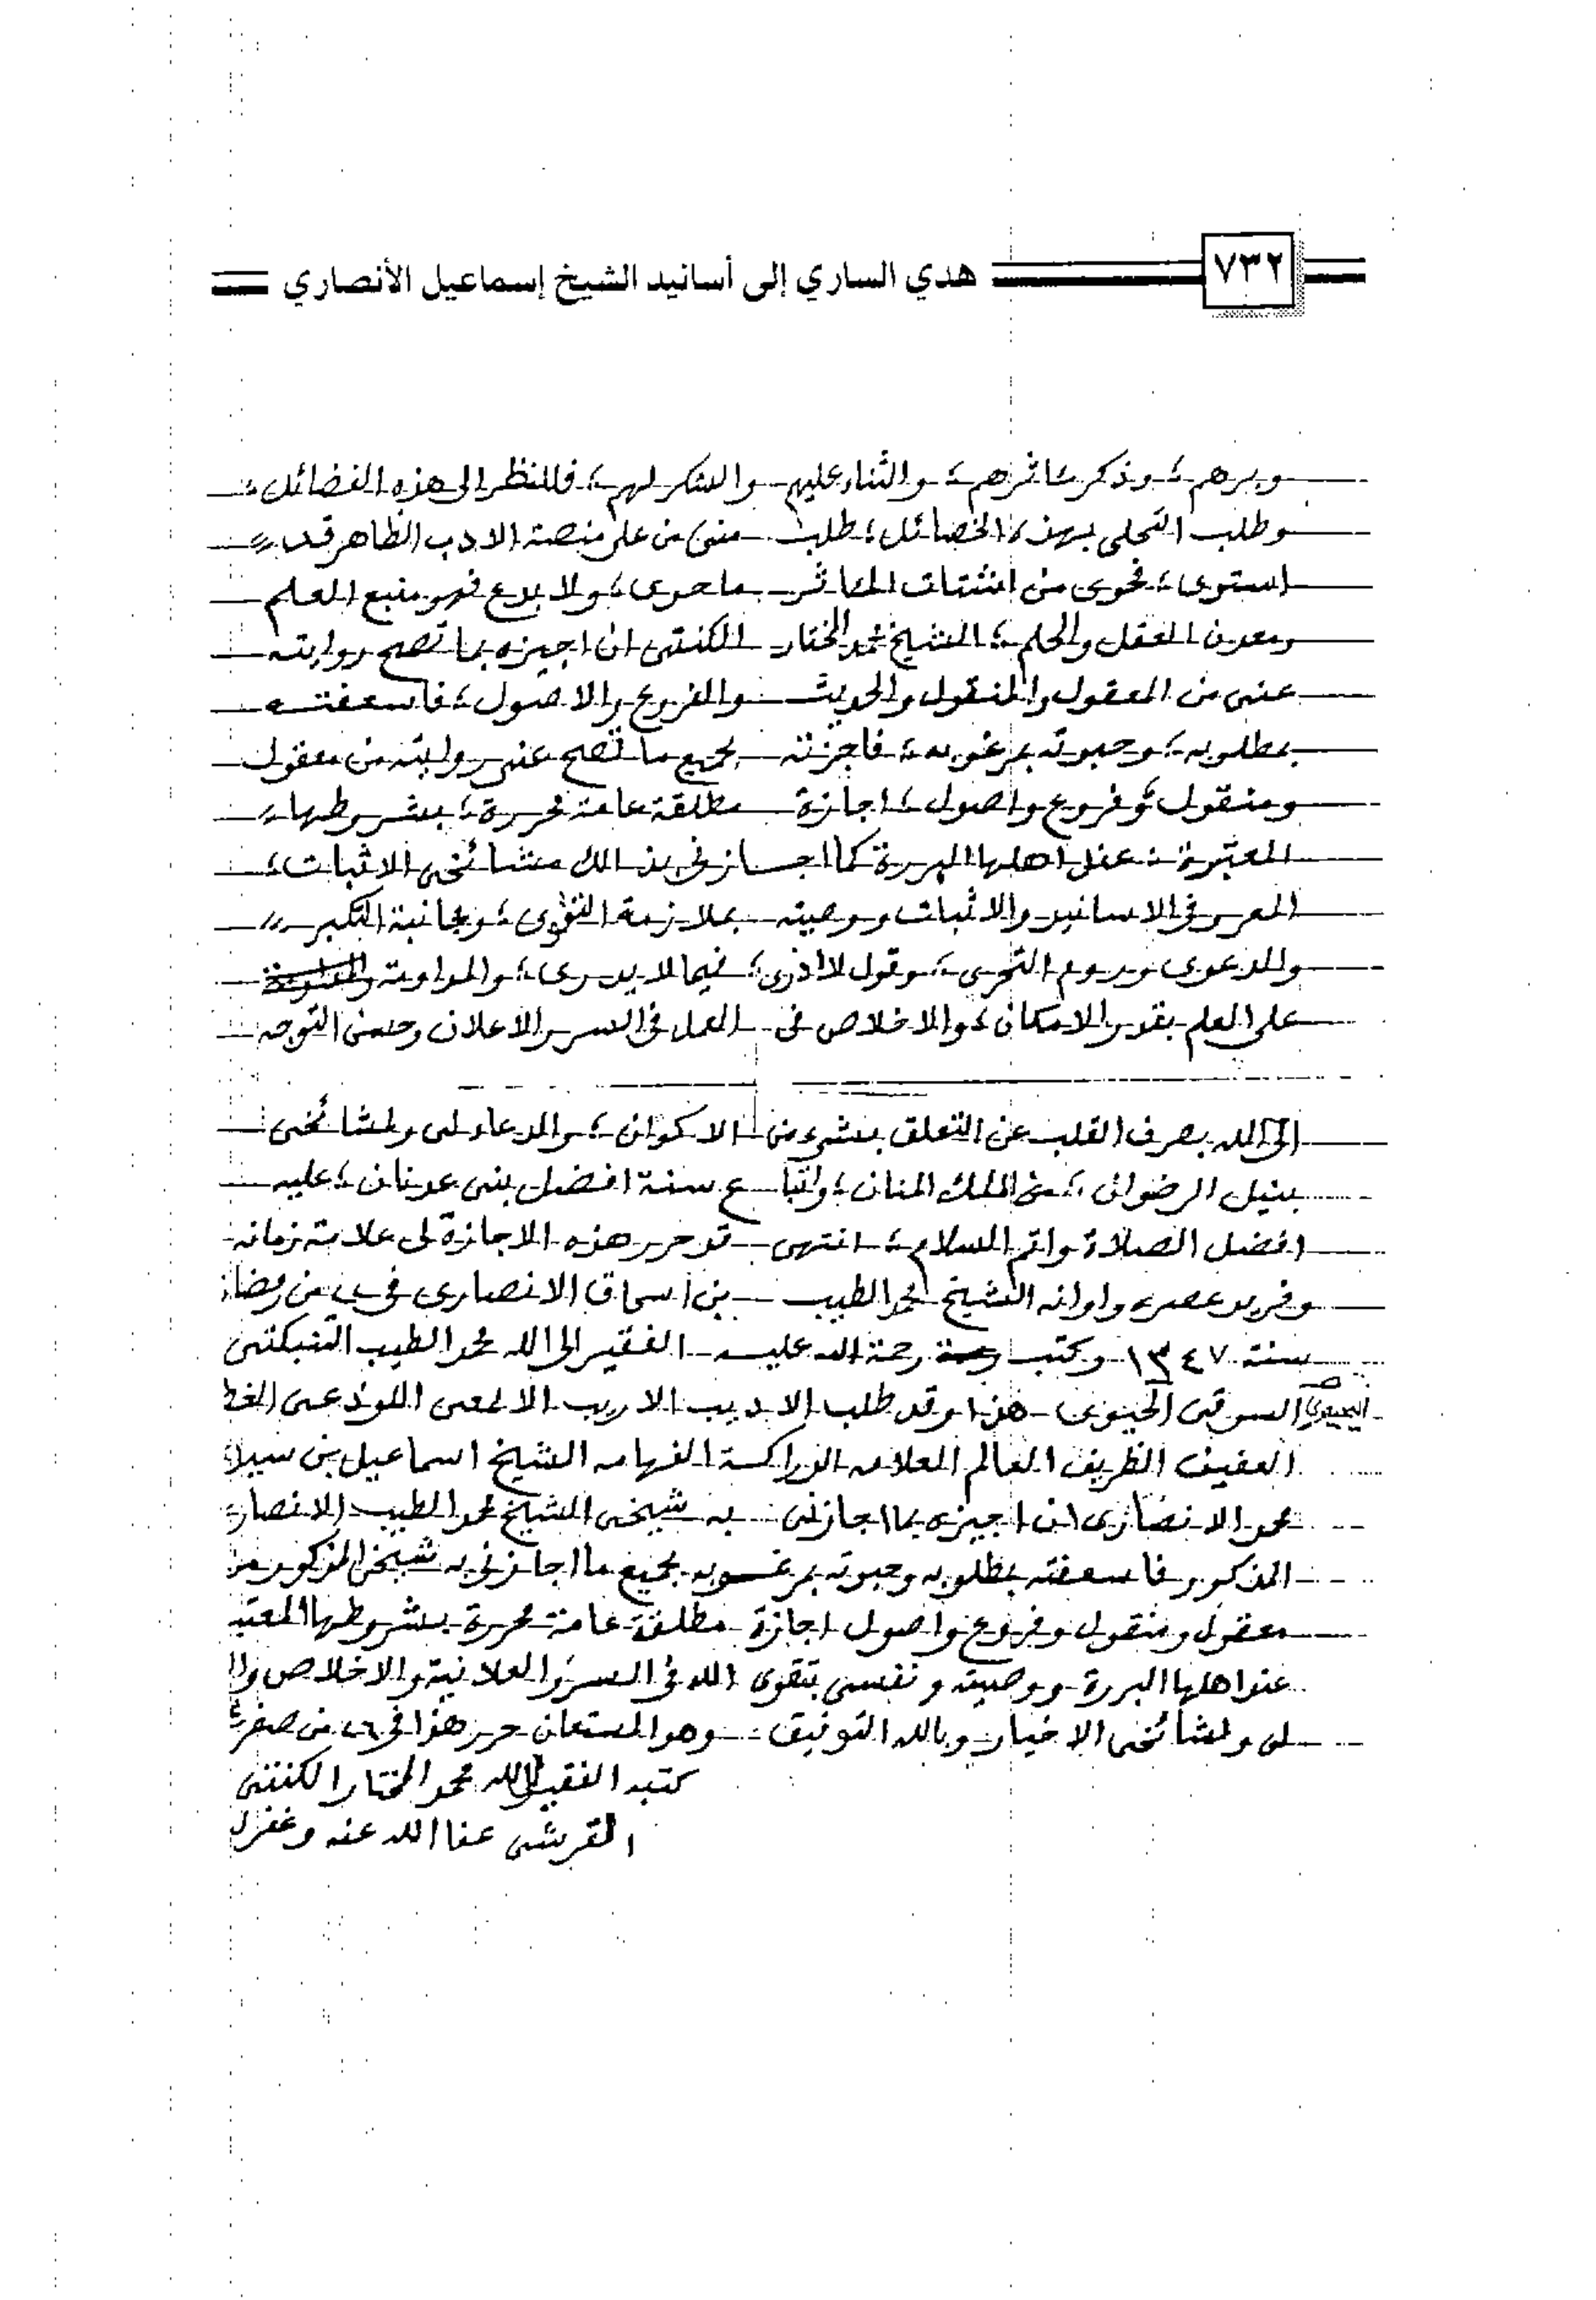 ٧٣٢ هدي الساري إلى أسانيد الشيخ إسماعيل الأنصاري
وبرهم؛ وذكر مآثرهم؛ والثناء عليهم والشكر لهم؛ فللنظر الى هذه الفضائل؛
وطلب التحلى بهذه الخصائل؛ طلب منى من على منصة الادب الظاهر قد
استوى؛ فحوى من اشتات المآثر ما حوى؛ ولا بدع فهو منبع العلم
ومعدن العقل والحلم؛ الشيخ محمد المختار الكنتى ان اجيزه بما تصح روايته
عنى من المعقول والمنقول والحديث والفروع والاصول؛ فاسعفته
بمطلوبه؛ وحبوته بمرغوبه؛ فاجزته بجميع ما تصح عنى روايته من معقول
ومنقول؛ وفروع واصول؛ اجازة مطلقة عامة محررة؛ بشروطها
المعتبرة؛ عند اهلها البررة كما اجازنى بذالك مشائخى الاثبات؛
المعرو فى الاسانيد والاثبات ووصيته بملازمة التقوى؛ ومجانبة التكبر
والدعوى وروم التحرى؛ وقول لا ادرى؛ فيما لا يدرى؛ والمداومة
على العلم بقدر الامكان؛ والاخلاص فى العمل فى السر والاعلان وحسن التوجه
الى الله بصرف القلب عن التعلق بشىء من الاكوان؛ والدعاء لى ولمشائخى
بنيل الرضوان؛ من الملك المنان؛ واتباع سنة افضل بنى عدنان؛ عليه
افضل الصلاة واتم السلام؛ انتهى قد حرر هذه الاجازة لى علامة زمانه
وفريد عصره واوانه الشيخ محمد الطيب بن اسحاق الانصارى فى من رمضا
سنة ١٣٤٧ وكتب رحمة الله عليه الفقير الى الله محمد الطيب التنبكتى
السوقى هذا وقد طلب الاديب الاريب الالمعى اللوذعى
العفيف الظريف العالم العلامه الدراكة الفهامه الشيخ اسماعيل بن سيد
محمد الانصارى ان اجيزه بما اجازنى به شيخى الشيخ محمد الطيب الانصار
المذكور فاسعفته بمطلوبه وحبوته بمرغوبه بجميع ما اجازنى به شيخى المذكور من
معقول ومنقول وفروع واصول اجازة مطلقة عامة محررة بشروطها المعتب
عند اهلها البررة ووصيته ونفسى بتقوى الله فى السر والعلانية والاخلاص وال
لى ولمشائخى الاخيار وبالله التوفيق وهو المستعان حرر هذا فى ٢٦ من صفر
كتبه الفقير الى الله محمد المختار الكنتى
القرشى عفا الله عنه وغفر